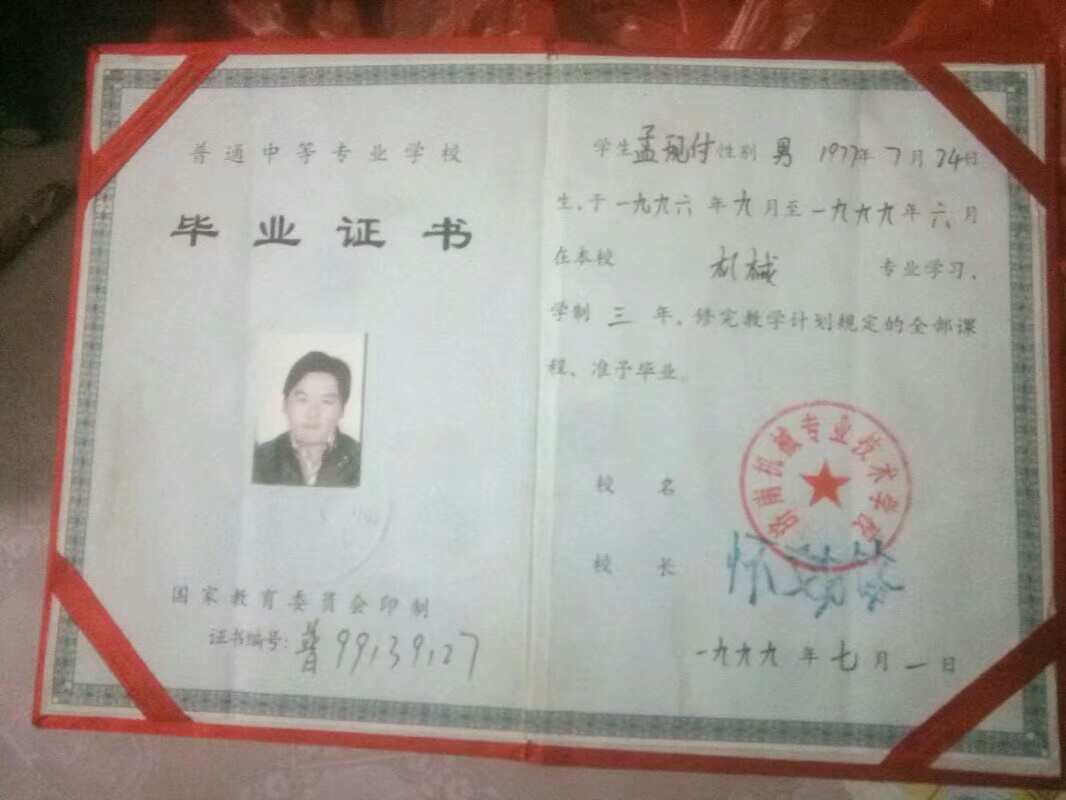 普通中等专业学校
毕业证书
国家教育委员会印制
证书编号：普99139127
学生孟现付性别 男 1977年7月24日
生，于一九九六年九月至一九九九年六月
在本校 机械 专业学习、
学制 三 年，修完教学计划规定的全部课
程，准予毕业。
济南机械专业技术学校
校 名
校 长
一九九九年七月一日